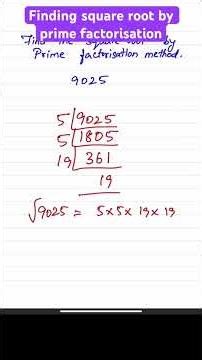 Finding square root by
prime factorisation
Find the square root by
Prime factorisation method.
9025
5 | 9025
5 | 1805
19 | 361
19
√9025 = 5×5×19×19